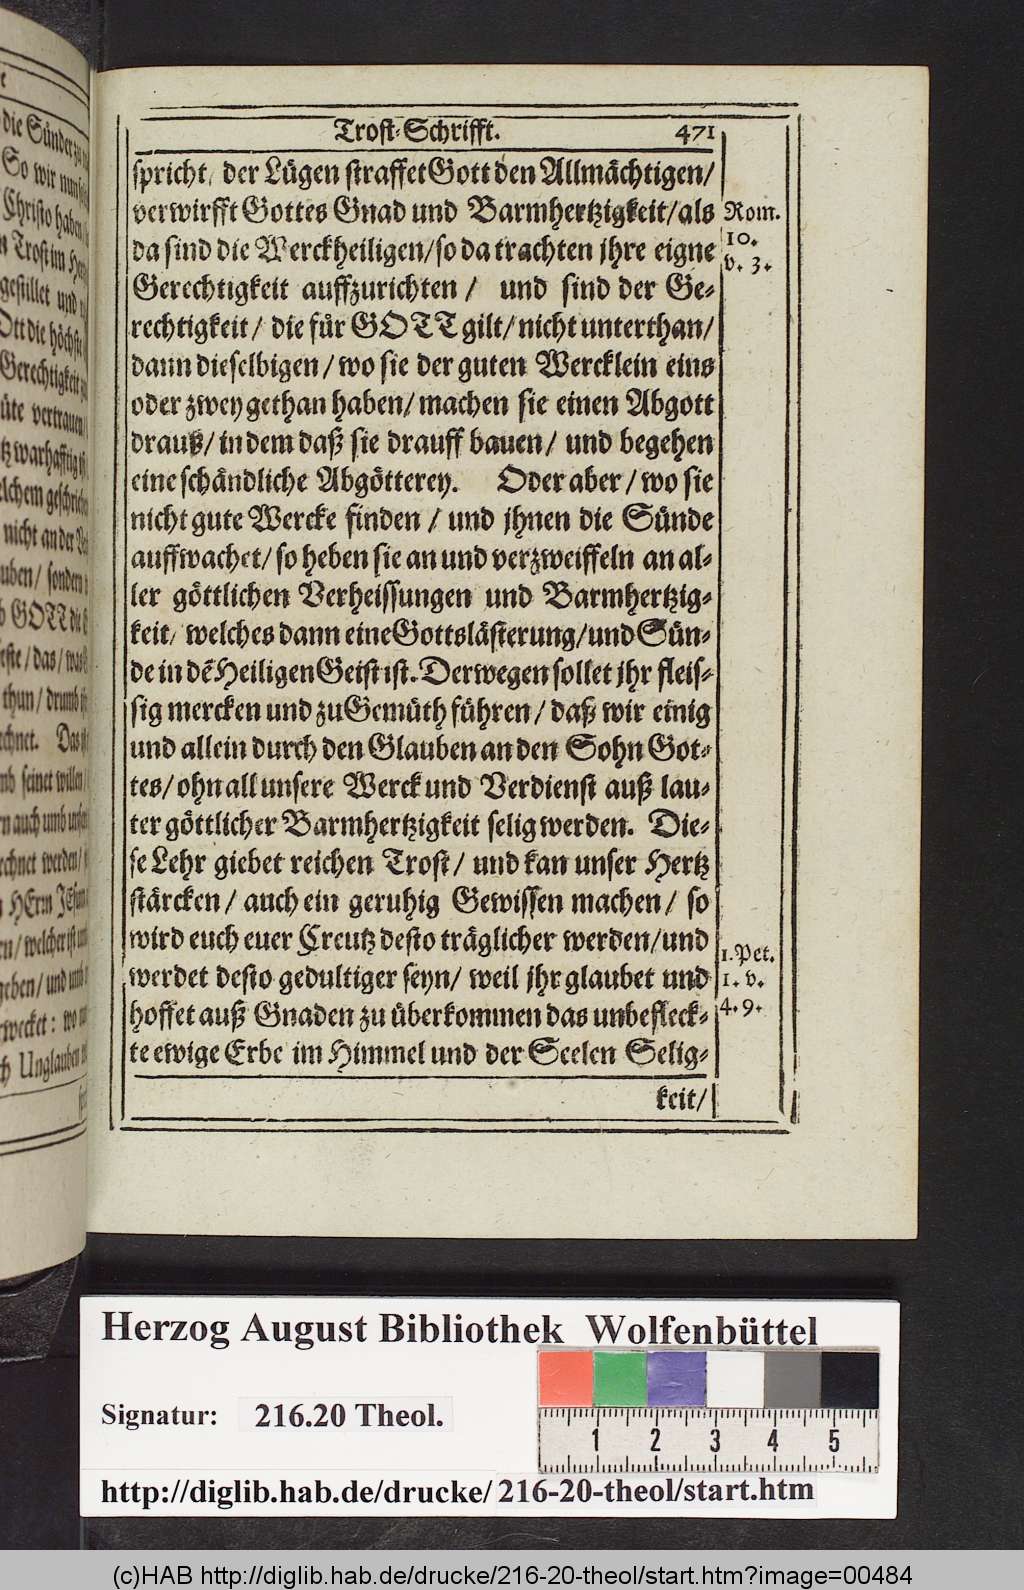 Trost-Schrifft. 471
spricht/ der Lügen straffet Gott den Allmächtigen/
verwirfft Gottes Gnad und Barmhertzigkeit/ als
da sind die Werckheiligen/ so da trachten jhre eigne
Gerechtigkeit auffzurichten / und sind der Ge-
rechtigkeit/ die für GOTT gilt/ nicht unterthan/
dann dieselbigen/ wo sie der guten Wercklein eins
oder zwey gethan haben/ machen sie einen Abgott
drauß/ in dem daß sie drauff bauen/ und begehen
eine schändliche Abgötterey. Oder aber/ wo sie
nicht gute Wercke finden / und jhnen die Sünde
auffwachet/ so heben sie an und verzweiffeln an al-
ler göttlichen Verheissungen und Barmhertzig-
keit/ welches dann eine Gottslästerung/ und Sün-
de in dẽ Heiligen Geist ist. Derwegen sollet jhr fleis-
sig mercken und zu Gemüth führen/ daß wir einig
und allein durch den Glauben an den Sohn Got-
tes/ ohn all unsere Werck und Verdienst auß lau-
ter göttlicher Barmhertzigkeit selig werden. Die-
se Lehr giebet reichen Trost/ und kan unser Hertz
stärcken/ auch ein geruhig Gewissen machen/ so
wird euch euer Creutz desto träglicher werden/ und
werdet desto gedultiger seyn/ weil jhr glaubet und
hoffet auß Gnaden zu überkommen das unbefleck-
te ewige Erbe im Himmel und der Seelen Selig-
keit/
Rom.
10.
v. 3.
1. Pet.
1. v.
4. 9.
die Sünder
So wir nun
Christo haben
Trost im
gestillet und
Ott die höchste
Gerechtigkeit
üte vertrauen/
warhafftig
elchem geschrieben
nicht an der
uben/ sondern
GOTT die
este/ das/ was
thun/ drumb
echnet. Das
mb seinet willen/
rn auch umb unser
echnet werden/
HErrn JEsum
en/ welcher ist
geben/ und umb
rwecket: wo
ch Unglauben
Herzog August Bibliothek Wolfenbüttel
Signatur: 216.20 Theol.
1 2 3 4 5
http://diglib.hab.de/drucke/216-20-theol/start.htm
(c)HAB http://diglib.hab.de/drucke/216-20-theol/start.htm?image=00484